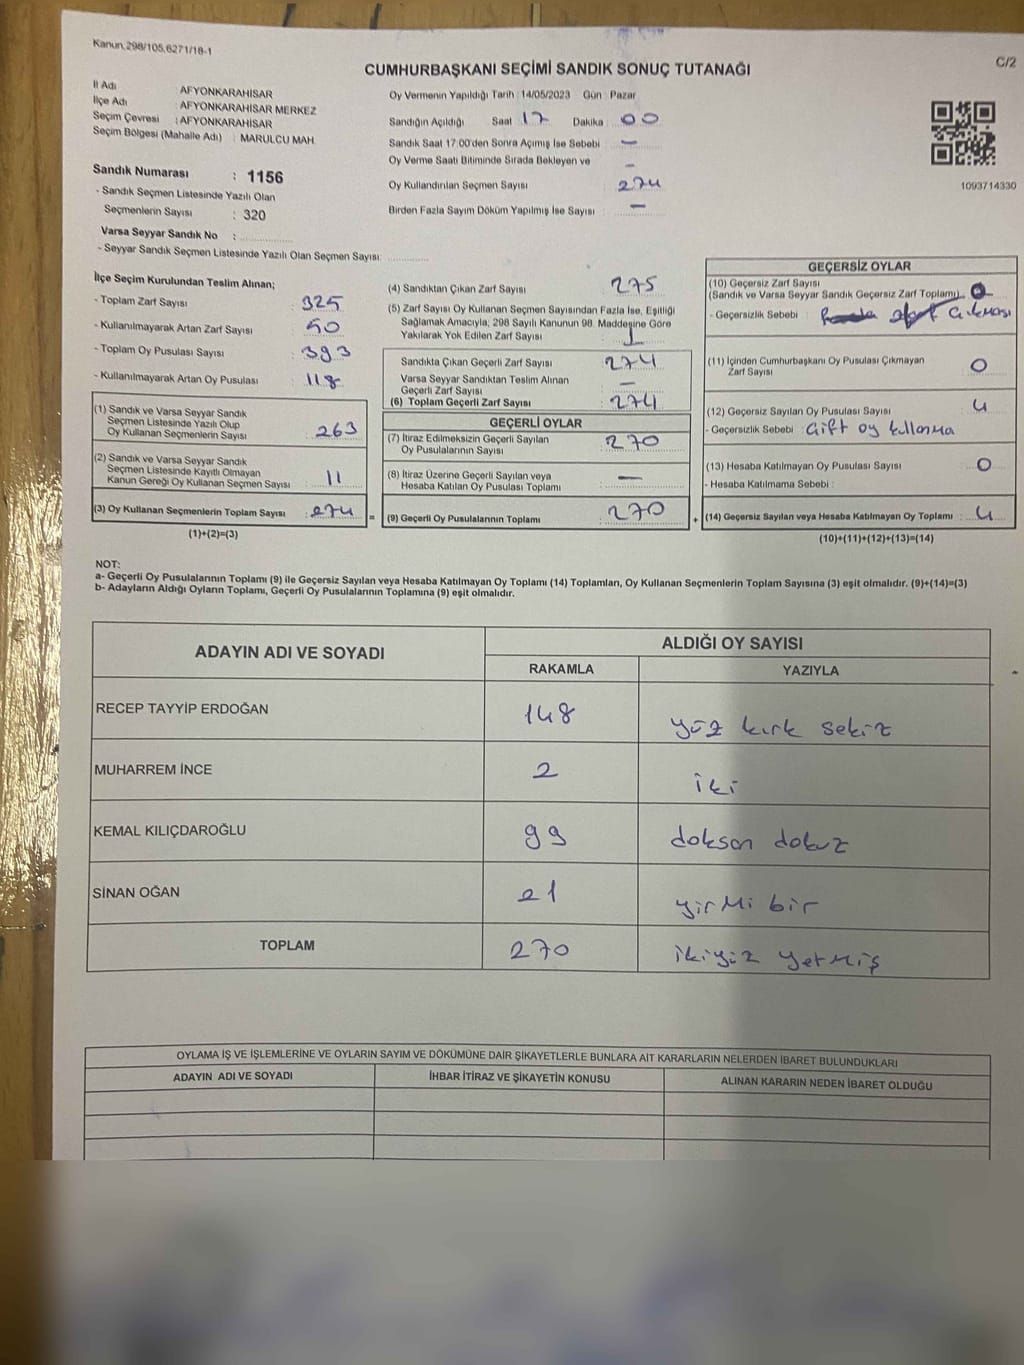 Kanun,298/105,6271/18-1
C/2
CUMHURBAŞKANI SEÇİMİ SANDIK SONUÇ TUTANAĞI
İl Adı : AFYONKARAHİSAR
İlçe Adı : AFYONKARAHİSAR MERKEZ
Seçim Çevresi : AFYONKARAHİSAR
Seçim Bölgesi (Mahalle Adı) : MARULCU MAH.
Sandık Numarası : 1156
- Sandık Seçmen Listesinde Yazılı Olan
Seçmenlerin Sayısı : 320
Varsa Seyyar Sandık No :
- Seyyar Sandık Seçmen Listesinde Yazılı Olan Seçmen Sayısı:
Oy Vermenin Yapıldığı Tarih : 14/05/2023 Gün : Pazar
Sandığın Açıldığı Saat 17 Dakika 00
Sandık Saat 17:00'den Sonra Açımış İse Sebebi : —
Oy Verme Saati Bitiminde Sırada Bekleyen ve —
Oy Kullandırılan Seçmen Sayısı : 274
Birden Fazla Sayım Döküm Yapılmış İse Sayısı : —
1093714330
İlçe Seçim Kurulundan Teslim Alınan;
- Toplam Zarf Sayısı : 325
- Kullanılmayarak Artan Zarf Sayısı : 50
- Toplam Oy Pusulası Sayısı : 393
- Kullanılmayarak Artan Oy Pusulası : 118
(1) Sandık ve Varsa Seyyar Sandık
Seçmen Listesinde Yazılı Olup
Oy Kullanan Seçmenlerin Sayısı : 263
(2) Sandık ve Varsa Seyyar Sandık
Seçmen Listesinde Kayıtlı Olmayan
Kanun Gereği Oy Kullanan Seçmen Sayısı : 11
(3) Oy Kullanan Seçmenlerin Toplam Sayısı : 274 =
(1)+(2)=(3)
(4) Sandıktan Çıkan Zarf Sayısı : 275
(5) Zarf Sayısı Oy Kullanan Seçmen Sayısından Fazla İse, Eşitliği
Sağlamak Amacıyla; 298 Sayılı Kanunun 98. Maddesine Göre
Yakılarak Yok Edilen Zarf Sayısı : 1
Sandıkta Çıkan Geçerli Zarf Sayısı : 274
Varsa Seyyar Sandıktan Teslim Alınan
Geçerli Zarf Sayısı : —
(6) Toplam Geçerli Zarf Sayısı : 274
GEÇERLİ OYLAR
(7) İtiraz Edilmeksizin Geçerli Sayılan
Oy Pusulalarının Sayısı : 270
(8) İtiraz Üzerine Geçerli Sayılan veya
Hesaba Katılan Oy Pusulası Toplamı : —
(9) Geçerli Oy Pusulalarının Toplamı : 270 +
GEÇERSİZ OYLAR
(10) Geçersiz Zarf Sayısı
(Sandık ve Varsa Seyyar Sandık Geçersiz Zarf Toplamı)
- Geçersizlik Sebebi : çıkması
(11) İçinden Cumhurbaşkanı Oy Pusulası Çıkmayan
Zarf Sayısı : 0
(12) Geçersiz Sayılan Oy Pusulası Sayısı : 4
- Geçersizlik Sebebi : Çift oy kullanma
(13) Hesaba Katılmayan Oy Pusulası Sayısı : 0
- Hesaba Katılmama Sebebi :
(14) Geçersiz Sayılan veya Hesaba Katılmayan Oy Toplamı : 4
(10)+(11)+(12)+(13)=(14)
NOT:
a- Geçerli Oy Pusulalarının Toplamı (9) ile Geçersiz Sayılan veya Hesaba Katılmayan Oy Toplamı (14) Toplamları, Oy Kullanan Seçmenlerin Toplam Sayısına (3) eşit olmalıdır. (9)+(14)=(3)
b- Adayların Aldığı Oyların Toplamı, Geçerli Oy Pusulalarının Toplamına (9) eşit olmalıdır.
ADAYIN ADI VE SOYADI ALDIĞI OY SAYISI
RAKAMLA YAZIYLA
RECEP TAYYİP ERDOĞAN 148 yüz kırk sekiz
MUHARREM İNCE 2 iki
KEMAL KILIÇDAROĞLU 99 doksan dokuz
SİNAN OĞAN 21 yirmi bir
TOPLAM 270 ikiyüz yetmiş
OYLAMA İŞ VE İŞLEMLERİNE VE OYLARIN SAYIM VE DÖKÜMÜNE DAİR ŞİKAYETLERLE BUNLARA AİT KARARLARIN NELERDEN İBARET BULUNDUKLARI
ADAYIN ADI VE SOYADI İHBAR İTİRAZ VE ŞİKAYETİN KONUSU ALINAN KARARIN NEDEN İBARET OLDUĞU